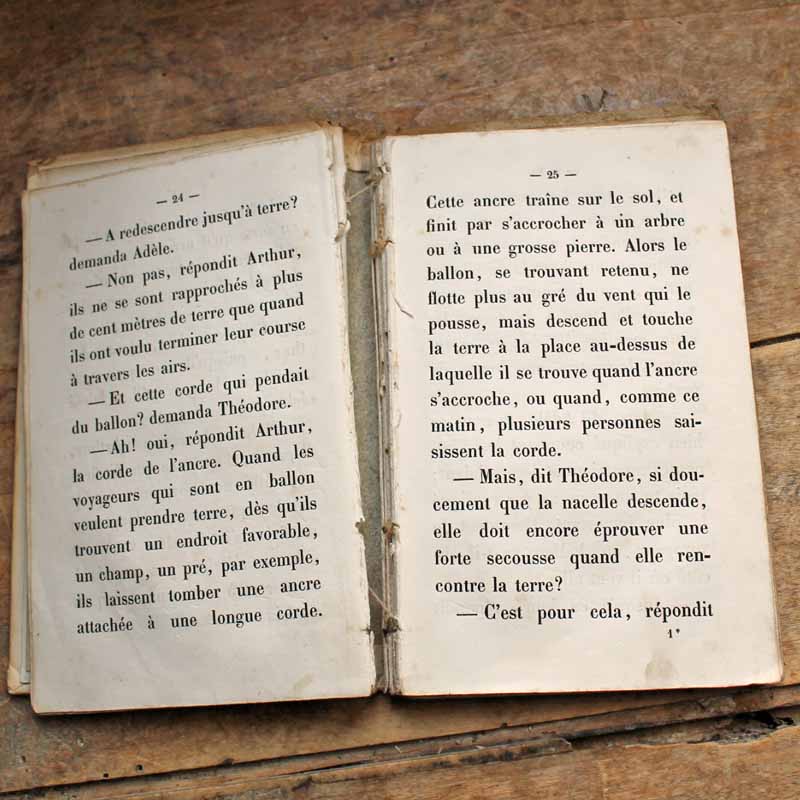 — 24 —
— A redescendre jusqu'à terre?
demanda Adèle.
— Non pas, répondit Arthur,
ils ne se sont rapprochés à plus
de cent mètres de terre que quand
ils ont voulu terminer leur course
à travers les airs.
— Et cette corde qui pendait
du ballon? demanda Théodore.
— Ah! oui, répondit Arthur,
la corde de l'ancre. Quand les
voyageurs qui sont en ballon
veulent prendre terre, dès qu'ils
trouvent un endroit favorable,
un champ, un pré, par exemple,
ils laissent tomber une ancre
attachée à une longue corde.
— 25 —
Cette ancre traîne sur le sol, et
finit par s'accrocher à un arbre
ou à une grosse pierre. Alors le
ballon, se trouvant retenu, ne
flotte plus au gré du vent qui le
pousse, mais descend et touche
la terre à la place au-dessus de
laquelle il se trouve quand l'ancre
s'accroche, ou quand, comme ce
matin, plusieurs personnes sai-
sissent la corde.
— Mais, dit Théodore, si dou-
cement que la nacelle descende,
elle doit encore éprouver une
forte secousse quand elle ren-
contre la terre?
— C'est pour cela, répondit
1*